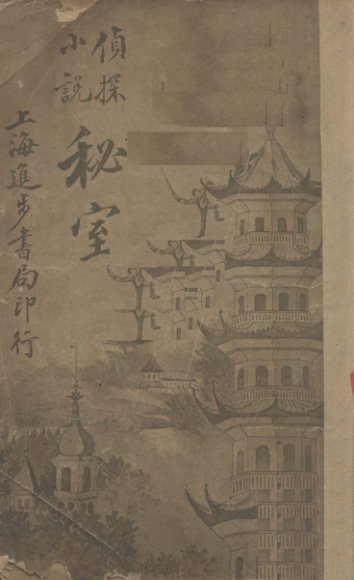 偵探
小說
秘室
上海進步書局印行